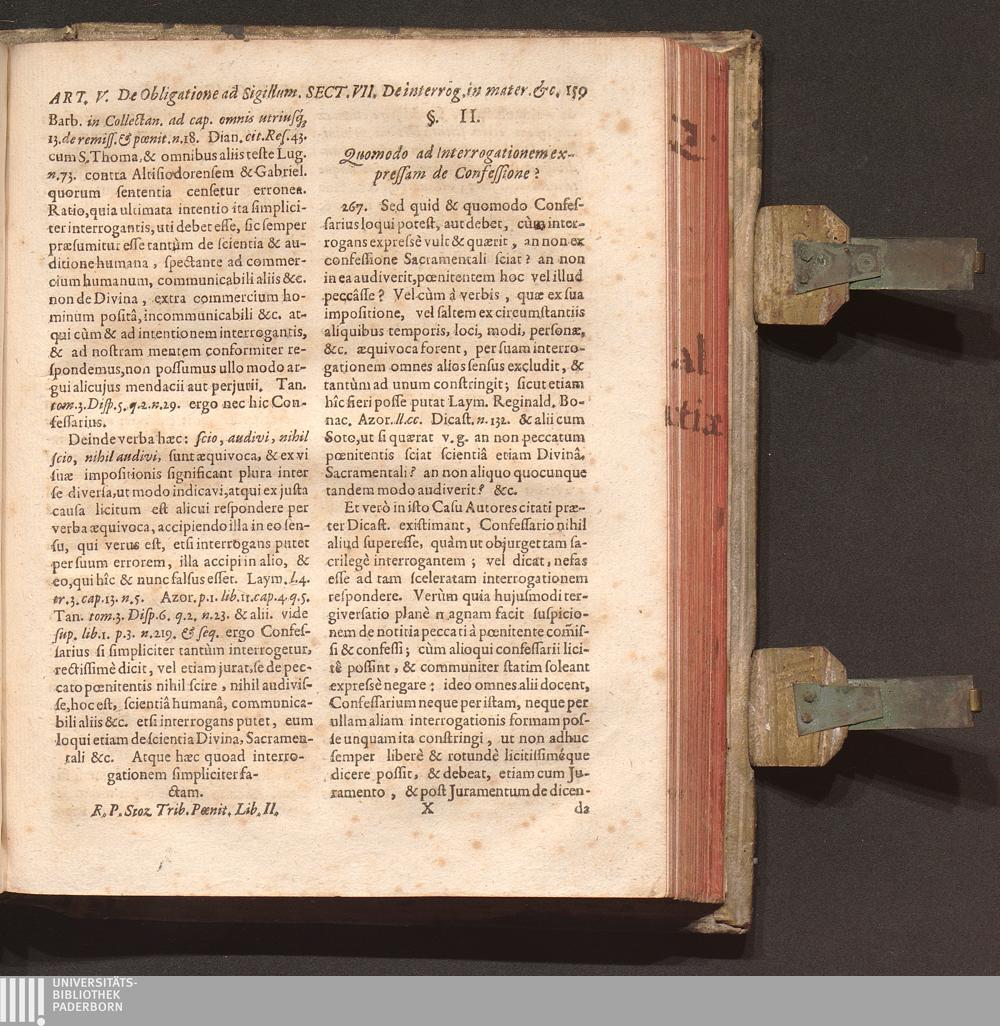 ART. V. De Obligatione ad Sigillum. SECT. VII. De interrog. in mater. &c. 159
Barb. in Collectan. ad cap. omnis utriusq́;
13. de remiss. & pœnit. n. 18. Dian. cit. Res. 43.
cum S. Thoma, & omnibus aliis teste Lug.
n. 73. contra Altisiodorensem & Gabriel.
quorum sententia censetur erronea.
Ratio, quia ultimata intentio ita simplici-
ter interrogantis, uti debet esse, sic semper
præsumitur esse tantùm de scientia & au-
ditione humana, spectante ad commer-
cium humanum, communicabili aliis &c.
non de Divina, extra commercium ho-
minum positâ, incommunicabili &c. at-
qui cùm & ad intentionem interrogantis,
& ad nostram mentem conformiter re-
spondemus, non possumus ullo modo ar-
gui alicujus mendacii aut perjurii. Tan.
tom. 3. Disp. 5. q. 2. n. 29. ergo nec hic Con-
fessarius.
Deinde verba hæc: scio, audivi, nihil
scio, nihil audivi, sunt æquivoca, & ex vi
suæ impositionis significant plura inter
se diversa, ut modo indicavi, atqui ex justa
causa licitum est alicui respondere per
verba æquivoca, accipiendo illa in eo sen-
su, qui verus est, etsi interrogans putet
per suum errorem, illa accipi in alio, &
eo, qui hîc & nunc falsus esset. Laym. l. 4.
tr. 3. cap. 13. n. 5. Azor. p. 1. lib. 11. cap. 4. q. 5.
Tan. tom. 3. Disp. 6. q. 2. n. 23. & alii. vide
sup. lib. 1. p. 3. n. 219. & seq. ergo Confes-
sarius si simpliciter tantùm interrogetur,
rectissimè dicit, vel etiam jurat, se de pec-
cato pœnitentis nihil scire, nihil audivis-
se, hoc est, scientiâ humanâ, communica-
bili aliis &c. etsi interrogans putet, eum
loqui etiam de scientia Divina, Sacramen-
tali &c. Atque hæc quoad interro-
gationem simpliciter fa-
ctam.
R. P. Stoz Trib. Pœnit. Lib. II.
§. II.
Quomodo ad Interrogationem ex-
pressam de Confessione?
267. Sed quid & quomodo Confes-
sarius loqui potest, aut debet, cùm inter-
rogans expressè vult & quærit, an non ex
confessione Sacramentali sciat? an non
in ea audiverit, pœnitentem hoc vel illud
peccâsse? Vel cùm â verbis, quæ ex sua
impositione, vel saltem ex circumstantiis
aliquibus temporis, loci, modi, personæ,
&c. æquivoca forent, per suam interro-
gationem omnes alios sensus excludit, &
tantùm ad unum constringit; sicut etiam
hîc fieri posse putat Laym. Reginald. Bo-
nac. Azor. ll. cc. Dicast. n. 132. & alii cum
Soto, ut si quærat v. g. an non peccatum
pœnitentis sciat scientiâ etiam Divinâ,
Sacramentali? an non aliquo quocunque
tandem modo audiverit? &c.
Et verò in isto Casu Autores citati præ-
ter Dicast. existimant, Confessario nihil
aliud superesse, quàm ut objurget tam sa-
crilegè interrogantem; vel dicat, nefas
esse ad tam sceleratam interrogationem
respondere. Verùm quia hujusmodi ter-
giversatio planè magnam facit suspicio-
nem de notitia peccati à pœnitente com̃is-
si & confessi; cùm alioqui confessarii lici-
tê possint, & communiter statim soleant
expressè negare: ideo omnes alii docent,
Confessarium neque per istam, neque per
ullam aliam interrogationis formam pos-
se unquam ita constringi, ut non adhuc
semper liberè & rotundè licitissiméque
dicere possit, & debeat, etiam cum Ju-
ramento, & post Juramentum de dicen-
X da
al
itiæ
UNIVERSITÄTS-
BIBLIOTHEK
PADERBORN